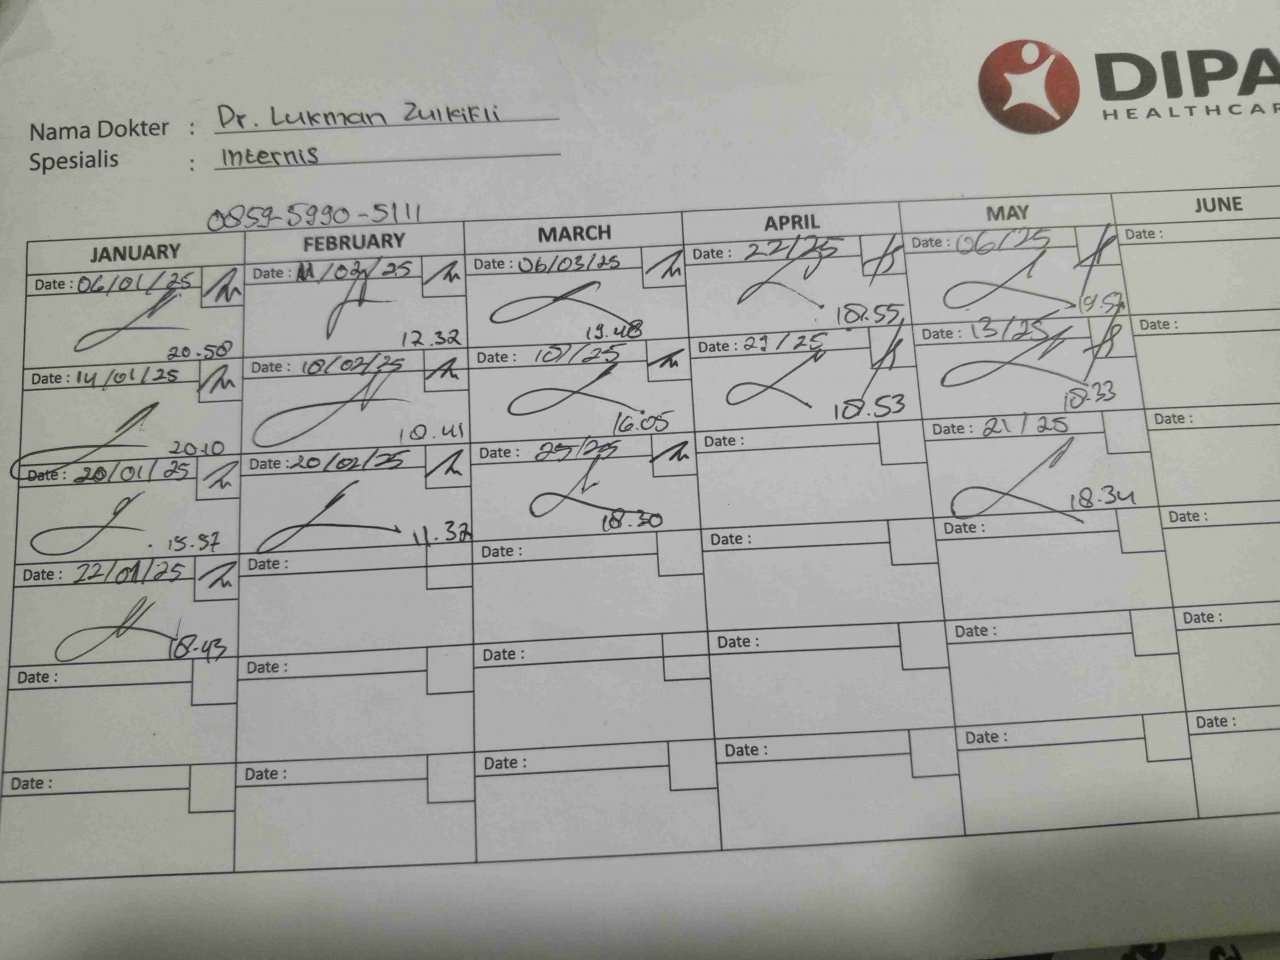 DIPA
HEALTHCAR
Nama Dokter : Dr. Lukman Zulkifli
Spesialis : Internis
0859-5990-5111
JANUARY FEBRUARY MARCH APRIL MAY JUNE
Date : 06/01/25 Date : 11/02/25 Date : 06/03/25 Date : 22/25 Date : 06/25 Date :
20.58 12.32 19.48 18.55 19.57
Date : 14/01/25 Date : 18/02/25 Date : 18/25 Date : 29/25 Date : 13/25 Date :
20.10 18.41 16.05 18.53 18.33
Date : 20/01/25 Date : 20/02/25 Date : 25/25 Date : Date : 21/25 Date :
15.57 11.32 18.30 18.34
Date : 22/01/25 Date : Date : Date : Date : Date :
18.43
Date : Date : Date : Date : Date : Date :
Date : Date : Date : Date : Date : Date :